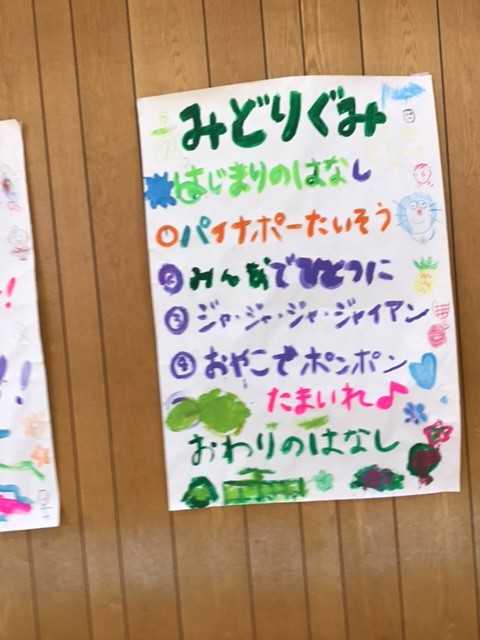 みどりぐみ
はじまりのはなし
①パイナポーたいそう
②みんなでひとつに
③ジャ・ジャ・ジャ・ジャイアン
④おやこでポンポン
たまいれ♪
おわりのはなし
!
!